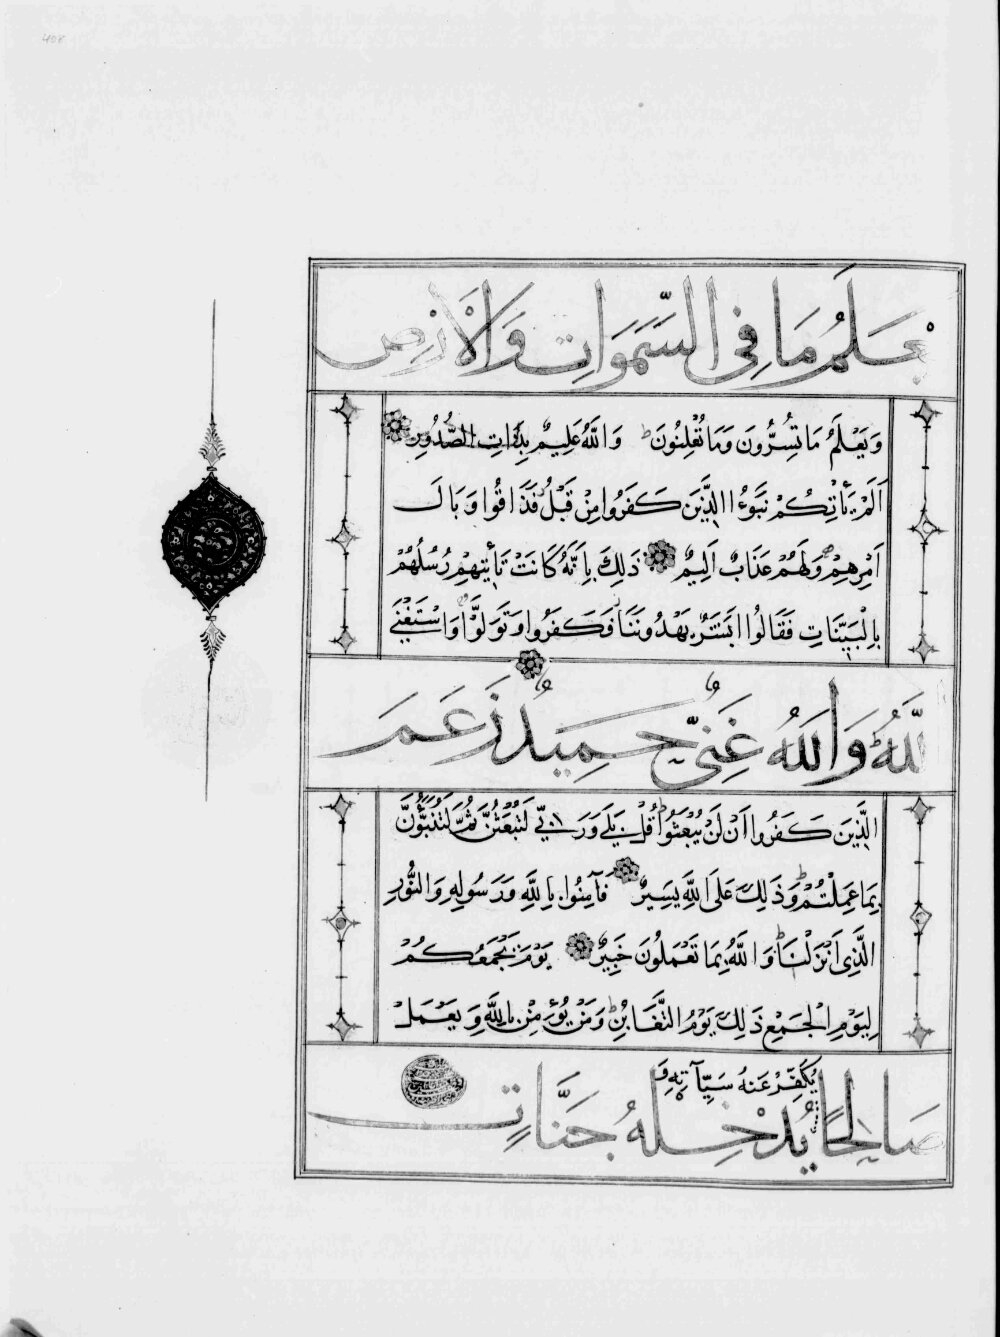 408
يَعْلَمُ مَا فِي السَّمَوَاتِ وَالْأَرْضِ
وَيَعْلَمُ مَا تُسِرُّونَ وَمَا تُعْلِنُونَ ط وَاللَّهُ عَلِيمٌ بِذَاتِ الصُّدُورِ
اَلَمْ يَأْتِكُمْ نَبَؤُا الَّذِينَ كَفَرُوا مِنْ قَبْلُ فَذَاقُوا وَبَالَ
اَمْرِهِمْ وَلَهُمْ عَذَابٌ اَلِيمٌ ذَلِكَ بِاَنَّهُ كَانَتْ تَأْتِيهِمْ رُسُلُهُمْ
بِالْبَيِّنَاتِ فَقَالُوا اَبَشَرٌ يَهْدُونَنَا فَكَفَرُوا وَتَوَلَّوْا وَاسْتَغْنَى
اللَّهُ ط وَاللَّهُ غَنِيٌّ حَمِيدٌ زَعَمَ
الَّذِينَ كَفَرُوا اَنْ لَنْ يُبْعَثُوا ط قُلْ بَلَى وَرَبِّي لَتُبْعَثُنَّ ثُمَّ لَتُنَبَّؤُنَّ
بِمَا عَمِلْتُمْ ط وَذَلِكَ عَلَى اللَّهِ يَسِيرٌ فَآمِنُوا بِاللَّهِ وَرَسُولِهِ وَالنُّورِ
الَّذِي اَنْزَلْنَا ط وَاللَّهُ بِمَا تَعْمَلُونَ خَبِيرٌ يَوْمَ يَجْمَعُكُمْ
لِيَوْمِ الْجَمْعِ ذَلِكَ يَوْمُ التَّغَابُنِ ط وَمَنْ يُؤْمِنْ بِاللَّهِ وَيَعْمَلْ
يُكَفِّرْ عَنْهُ سَيِّآتِهِ وَ
صَالِحًا يُدْخِلْهُ جَنَّاتٍ